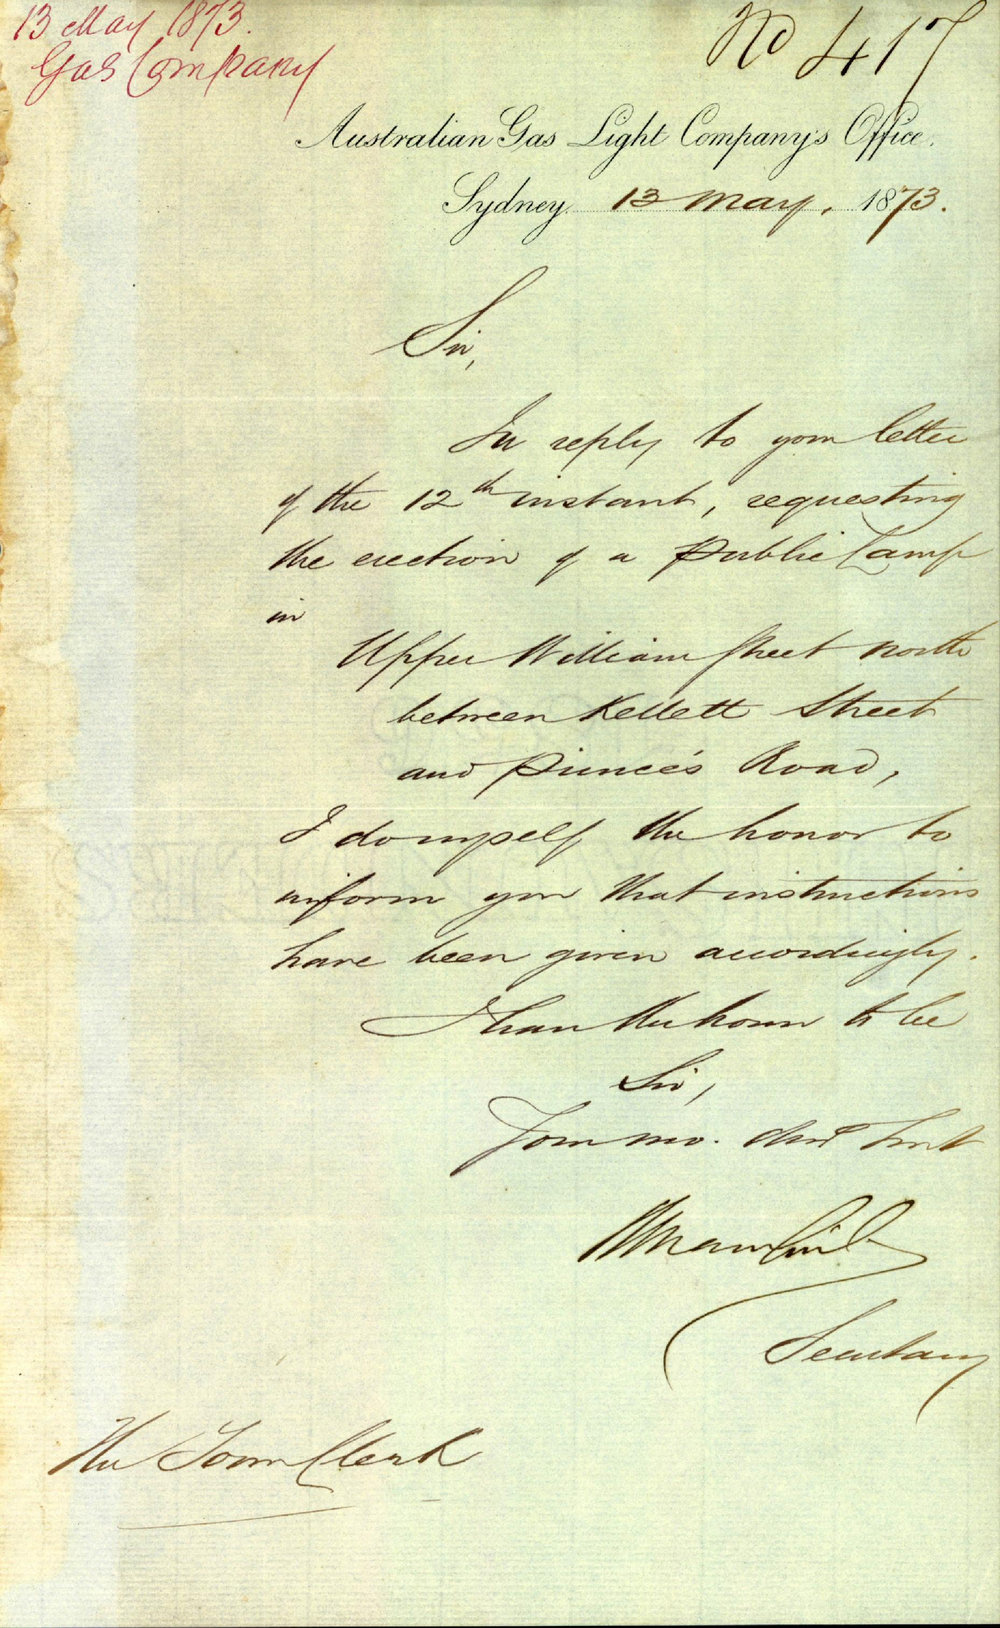 13 May 1873.
Gas Company
No 417
Australian Gas Light Company's Office.
Sydney 13 May, 1873.
Sir,
In reply to your letter
of the 12th instant, requesting
the erection of a Public Lamp
in
Upper William Street North
between Kellett Street
and Pierce's Road,
I do myself the honor to
inform you that instructions
have been given accordingly.
I have the honor to be
Sir,
Your mo. obdt Servt
Secretary
The Town Clerk